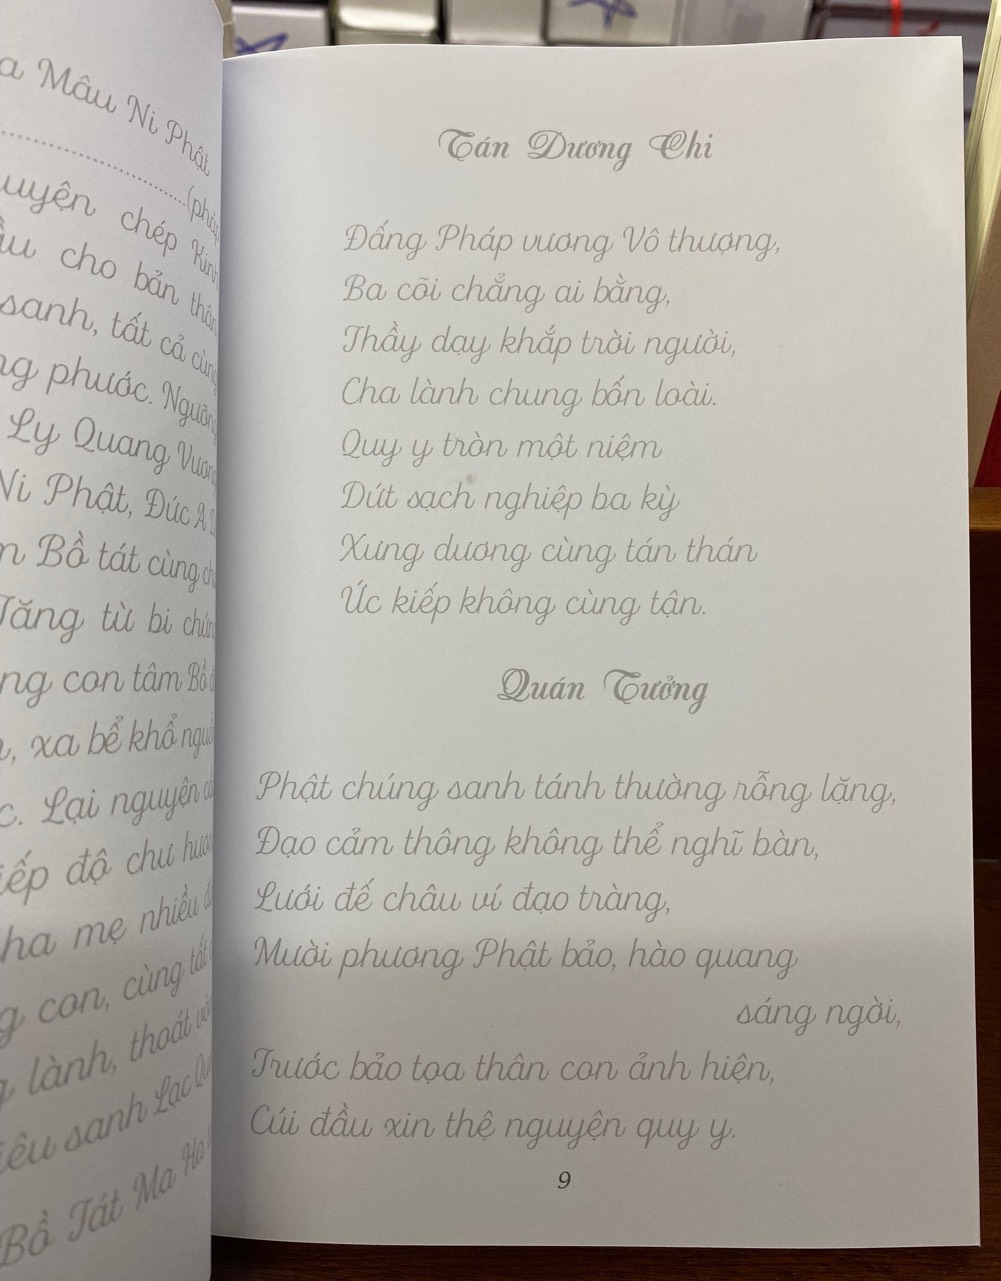 Mâu Ni Phật
(pháp
chép Kinh
cho bản thân
sanh, tất cả cùng
phước. Ngưỡng
Ly Quang Vương
Ni Phật, Đức A
Bồ tát cùng
Tăng từ bi
con tâm Bồ
xa bể khổ
Lại nguyện
độ chư
mẹ nhiều
con, cùng tất
lành, thoát
sanh Lạc
Bồ Tát Ma Ha
Tán Dương Chi
Đấng Pháp vương Vô thượng,
Ba cõi chẳng ai bằng,
Thầy dạy khắp trời người,
Cha lành chung bốn loài.
Quy y tròn một niệm
Dứt sạch nghiệp ba kỳ
Xưng dương cùng tán thán
Ức kiếp không cùng tận.
Quán Tưởng
Phật chúng sanh tánh thường rỗng lặng,
Đạo cảm thông không thể nghĩ bàn,
Lưới đế châu ví đạo tràng,
Mười phương Phật bảo, hào quang
sáng ngời,
Trước bảo tọa thân con ảnh hiện,
Cúi đầu xin thệ nguyện quy y.
9